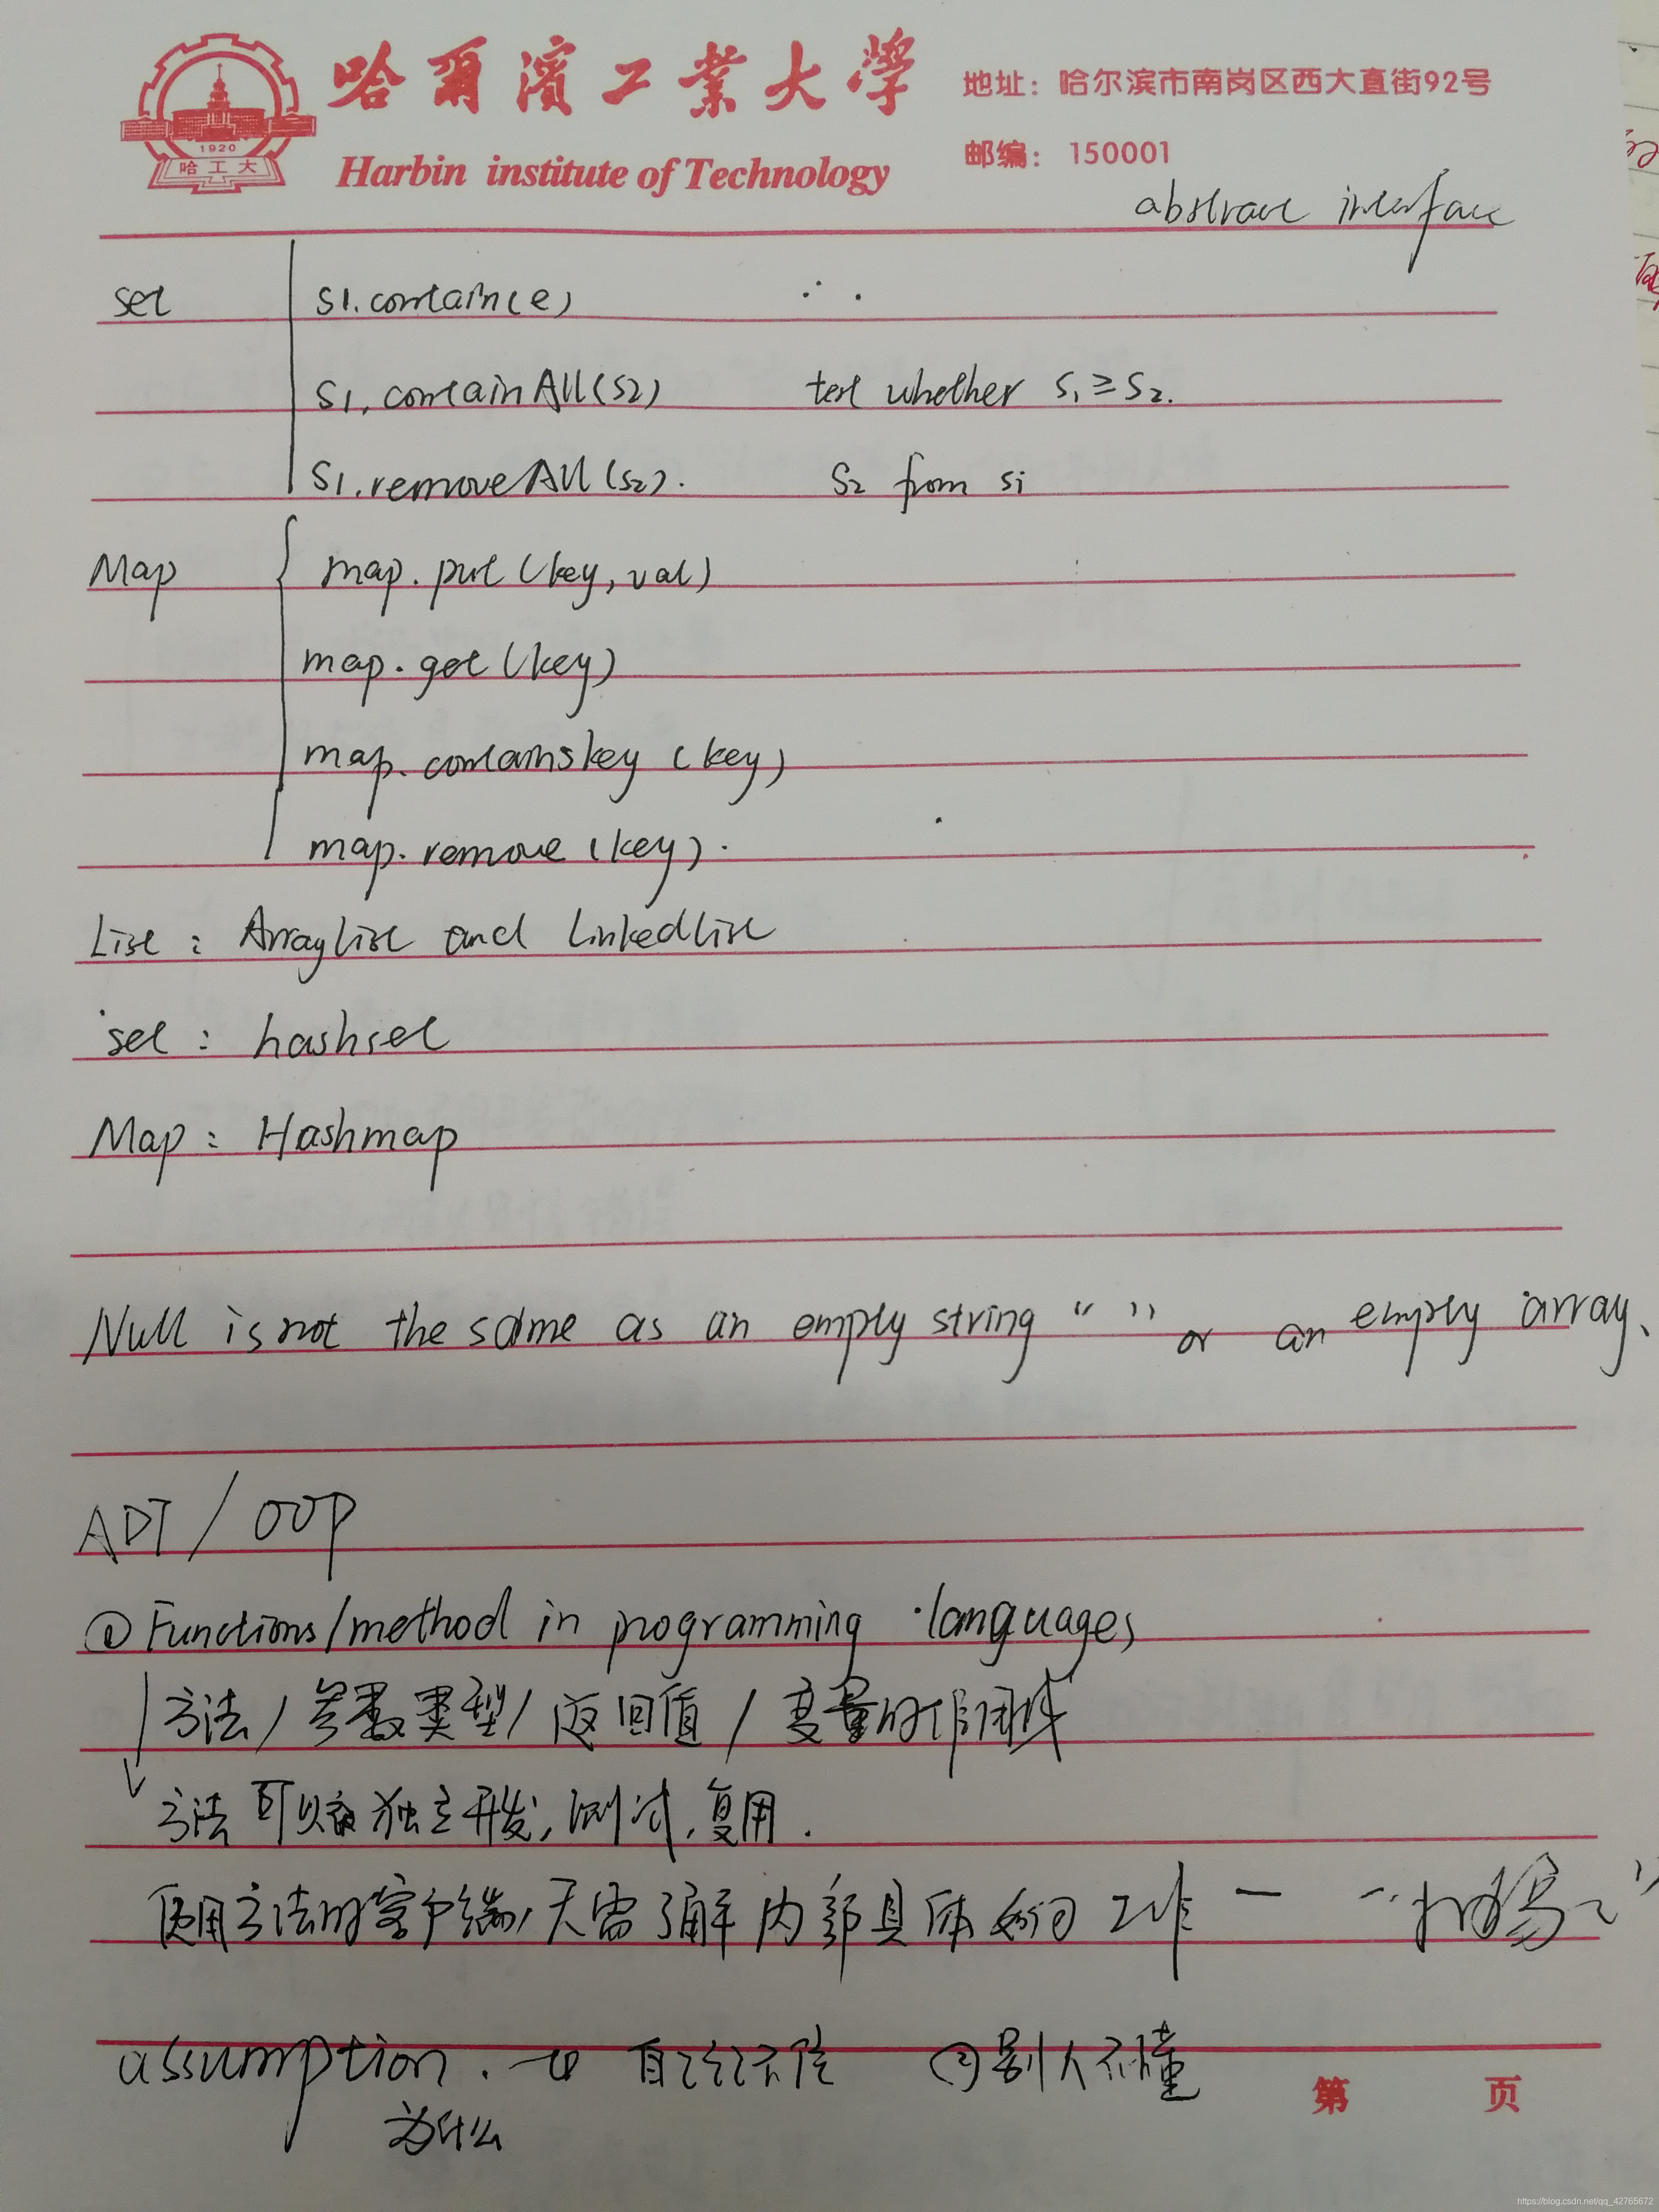 哈爾濱工業大學
地址：哈尔滨市南岗区西大直街92号
1920
哈工大
Harbin institute of Technology
邮编：150001
abstract interface
set S1.contain(e) ∴
S1.containAll(S2) test whether S1≥S2.
S1.removeAll(S2). S2 from S1
Map map.put(key,val)
map.get(key)
map.containskey(key)
map.remove(key).
List: Arraylist and linkedlist
set: hashset
Map: Hashmap
Null is not the same as an empty string “ ” or an empty array、
ADT/OOP
① Functions/method in programming languages
方法/参数类型/返回值/变量的作用域
方法可以被独立开发,测试,复用.
使用方法的客户端,无需了解内部具体如何工作 —
assumption. → ① 自己记不住 ② 别人不懂
为什么
第 页
https://blog.csdn.net/qq_42765672